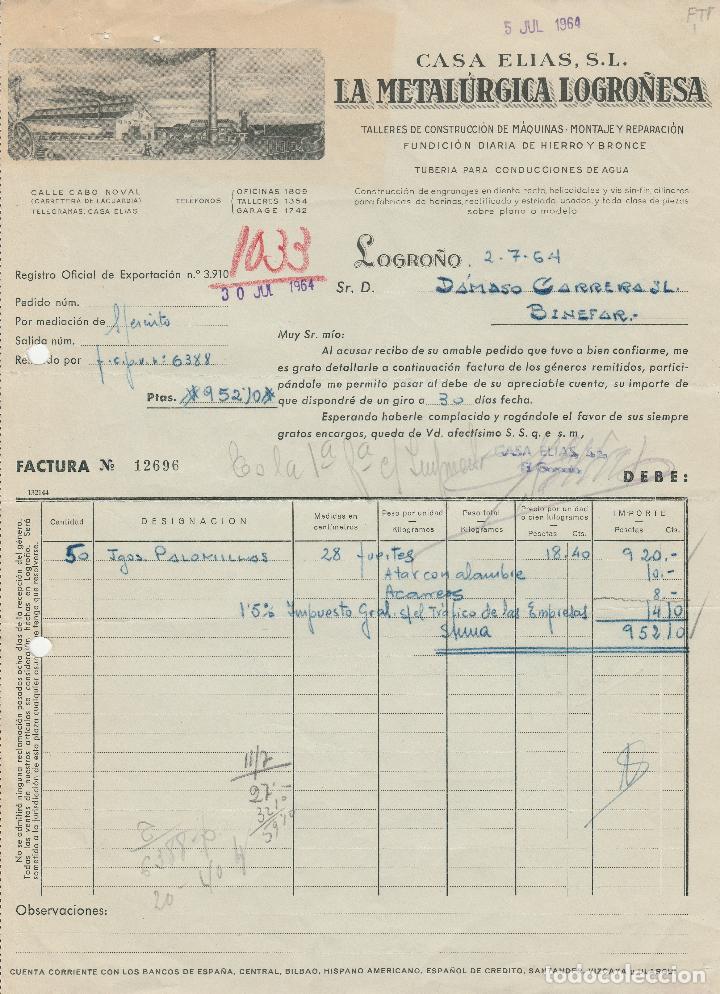 5 JUL 1964
CASA ELIAS, S.L.
LA METALÚRGICA LOGROÑESA
TALLERES DE CONSTRUCCIÓN DE MÁQUINAS · MONTAJE Y REPARACIÓN
FUNDICIÓN DIARIA DE HIERRO Y BRONCE
TUBERIA PARA CONDUCCIONES DE AGUA
Construcción de engranajes en diente recto, helicoidales y vis-sin-fin, cilindros
para fábricas de harinas, rectificado y estriado usados, y toda clase de piezas
sobre plano o modelo
CALLE CABO NOVAL
(CARRETERA DE LAGUARDIA)
TELEGRAMAS: CASA ELIAS
TELÉFONOS
OFICINAS 1809
TALLERES 1354
GARAGE 1742
1033
LOGROÑO, 2-7-64
Registro Oficial de Exportación n.º 3.910
30 JUL 1964
Sr. D. DÁMASO CARRERA SL.
BINEFAR.-
Pedido núm.
Por mediación de
Salida núm.
por f.c.p.v. nº 6388
Ptas. *952'10*
Muy Sr. mío:
Al acusar recibo de su amable pedido que tuvo a bien confiarme, me
es grato detallarle a continuación factura de los géneros remitidos, partici-
pándole me permito pasar al debe de su apreciable cuenta, su importe de
que dispondré de un giro a 30 días fecha.
Esperando haberle complacido y rogándole el favor de sus siempre
gratos encargos, queda de Vd. afectísimo S. S. q. e. s. m.,
CASA ELIAS, S.L.
FACTURA Nº 12696
DEBE:
132144
Cantidad
DESIGNACION
Medidas en centímetros
Peso por unidad Kilogramos
Peso total Kilogramos
Precio por unidad o bien kilogramos Pesetas Cts.
IMPORTE Pesetas Cts.
50 Jgos PALOMILLAS 28 18'40 920.-
Atar con alambre 10.-
Acarreos 8.-
1'5% Impuesto Gral. s/el Tráfico de las Empresas 14 10
Suma 952 10
No se admitirá ninguna reclamación pasados ocho días de la recepción del género.
Todas las ventas de nuestros artículos se consideran hechas en Logroño. Será
11/7
27
32,10
59,10
6388
20
Observaciones:
CUENTA CORRIENTE CON LOS BANCOS DE ESPAÑA, CENTRAL, BILBAO, HISPANO AMERICANO, ESPAÑOL DE CREDITO, SANTANDER, VIZCAYA
todocoleccion.net